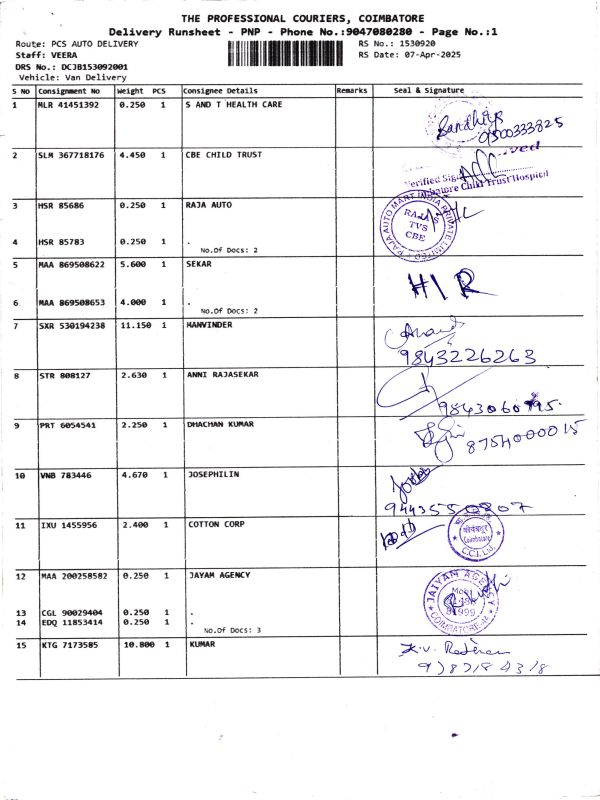 THE PROFESSIONAL COURIERS, COIMBATORE
Delivery Runsheet - PNP - Phone No.:9047080280 - Page No.:1
Route: PCS AUTO DELIVERY
RS No.: 1530920
Staff: VEERA
RS Date: 07-Apr-2025
DRS No.: DCJB153092001
Vehicle: Van Delivery
S No Consignment No Weight PCS Consignee Details Remarks Seal & Signature
1 MLR 41451392 0.250 1 S AND T HEALTH CARE
Sandhiya
9500333825
2 SLM 367718176 4.450 1 CBE CHILD TRUST
Verified
Child Trust Hospital
3 HSR 85686 0.250 1 RAJA AUTO
RAJA AUTO MART INDIA PRIVATE LIMITED
RAJAS
TVS
CBE
4 HSR 85783 0.250 1 .
No.Of Docs: 2
5 MAA 869508622 5.600 1 SEKAR
HIR
6 MAA 869508653 4.000 1 .
No.Of Docs: 2
7 SXR 530194238 11.150 1 MANVINDER
Anand
9843226263
8 STR 808127 2.630 1 ANNI RAJASEKAR
9 PRT 6054541 2.250 1 DHACHAN KUMAR
8754000015
10 VNB 783446 4.670 1 JOSEPHILIN
11 IXU 1455956 2.400 1 COTTON CORP
कोयंबत्तूर
Coimbatore
C.C.I. Ltd.
12 MAA 200258582 0.250 1 JAYAM AGENCY
JAIYAM AGENCY
COIMBATORE-44
13 CGL 90029404 0.250 1 .
14 EDQ 11853414 0.250 1 .
No.Of Docs: 3
15 KTG 7173585 10.800 1 KUMAR
K.V.